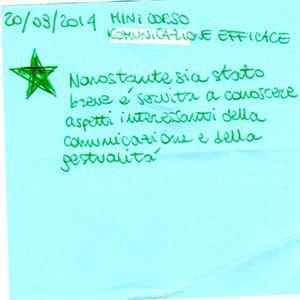 20/09/2014 MINI CORSO
KOMUNICAZIONE EFFICACE
Nonostante sia stato
breve é servita a conoscere
aspetti interessanti della
comunicazione e della
gestualità